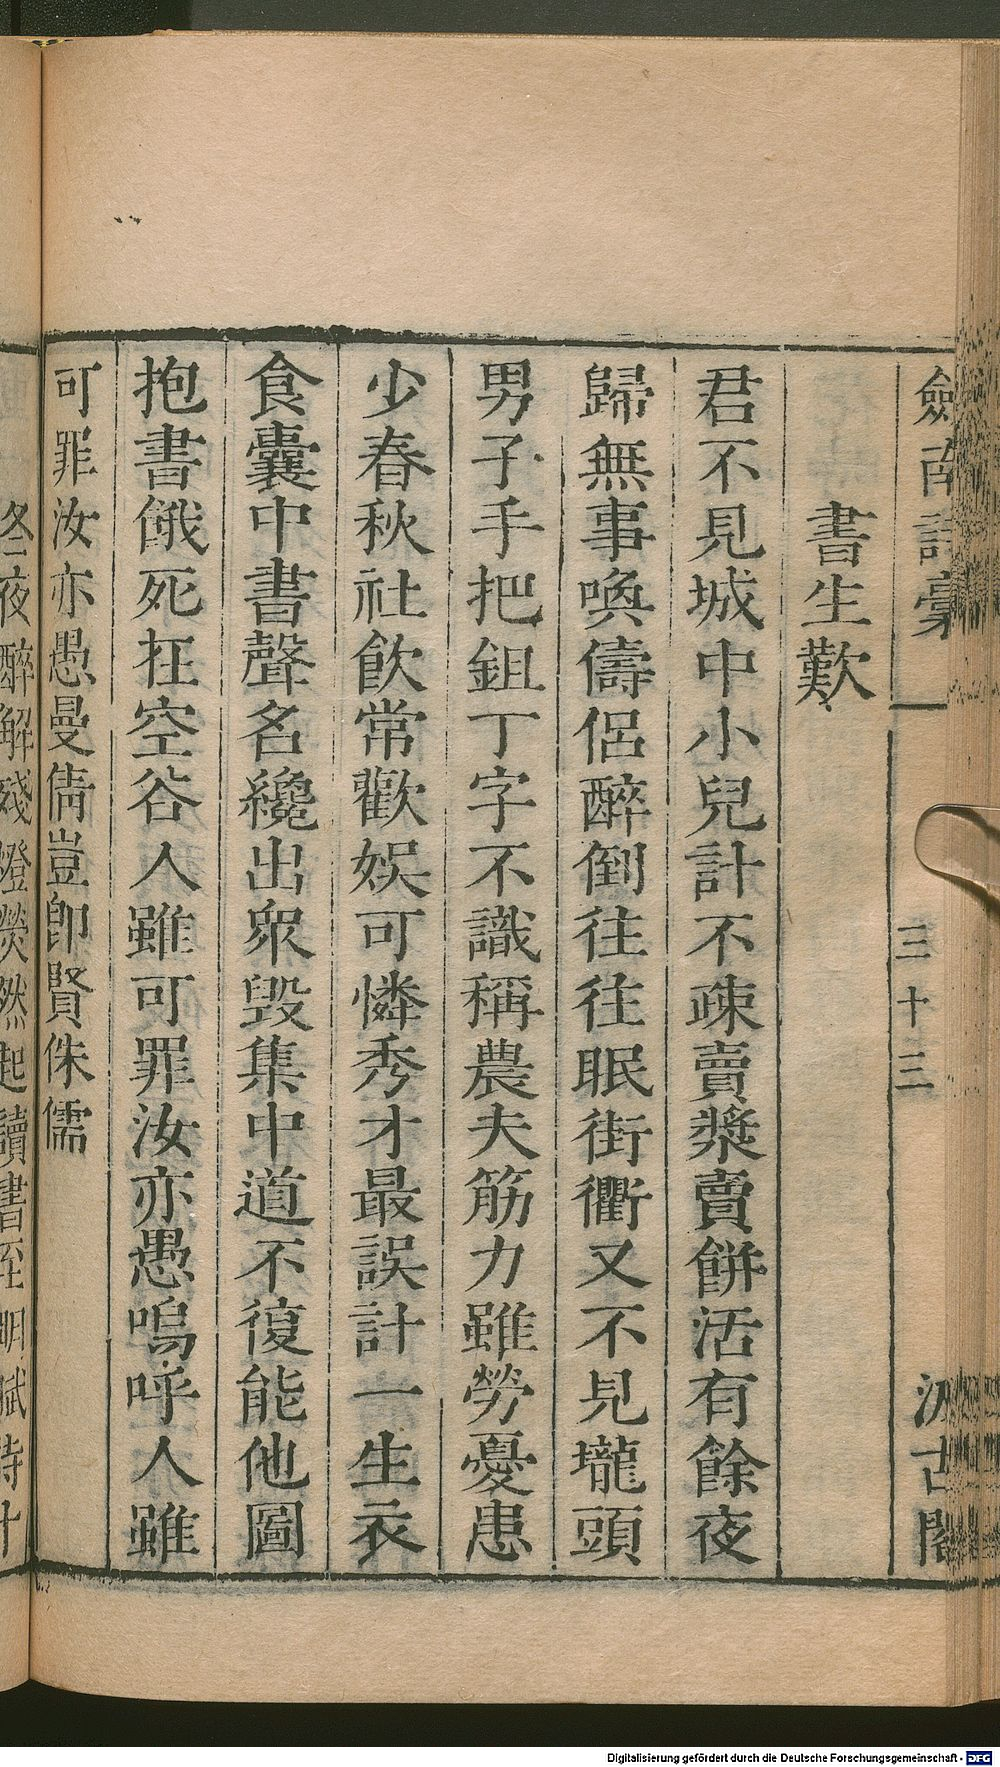 劍南詩稾 一 三十三 汲古閣
書生歎
君不見城中小兒計不疎賣漿賣餅活有餘夜
歸無事喚儔侶醉倒往往眠街衢又不見壠頭
男子手把鉏丁字不識稱農夫筋力雖勞憂患
少春秋社飮常歡娛可憐秀才最誤計一生衣
食囊中書聲名纔出衆毀集中道不復能他圖
抱書餓死在空谷人雖可罪汝亦愚嗚呼人雖
可罪汝亦愚曼倩豈卽賢侏儒
冬夜醉解殘燈熒然起讀書至明賦詩十
Digitalisierung gefördert durch die Deutsche Forschungsgemeinschaft - DFG